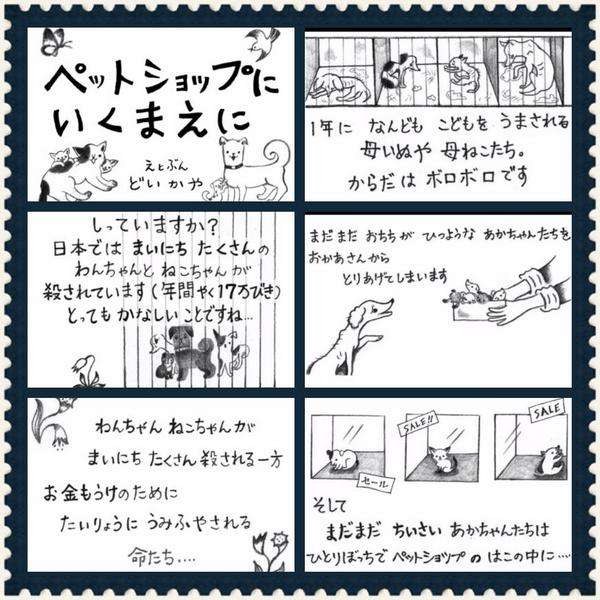 ペットショップに
いくまえに
えとぶん
どいかや
しっていますか？
日本では まいにち たくさんの
わんちゃんと ねこちゃんが
殺されています(年間やく17万びき)
とっても かなしい ことですね…
わんちゃん ねこちゃんが
まいにち たくさん 殺される一方
お金もうけのために
たいりょうに うみふやされる
命たち‥‥
1年に なんども こどもを うまされる
母いぬや 母ねこたち。
からだは ボロボロです
まだまだ おちちが ひつような あかちゃんたちを
おかあさんから
とりあげてしまいます
SALE!!
SALE
セール
そして
まだまだ ちいさい あかちゃんたちは
ひとりぼっちで ペットショップの はこの中に‥‥